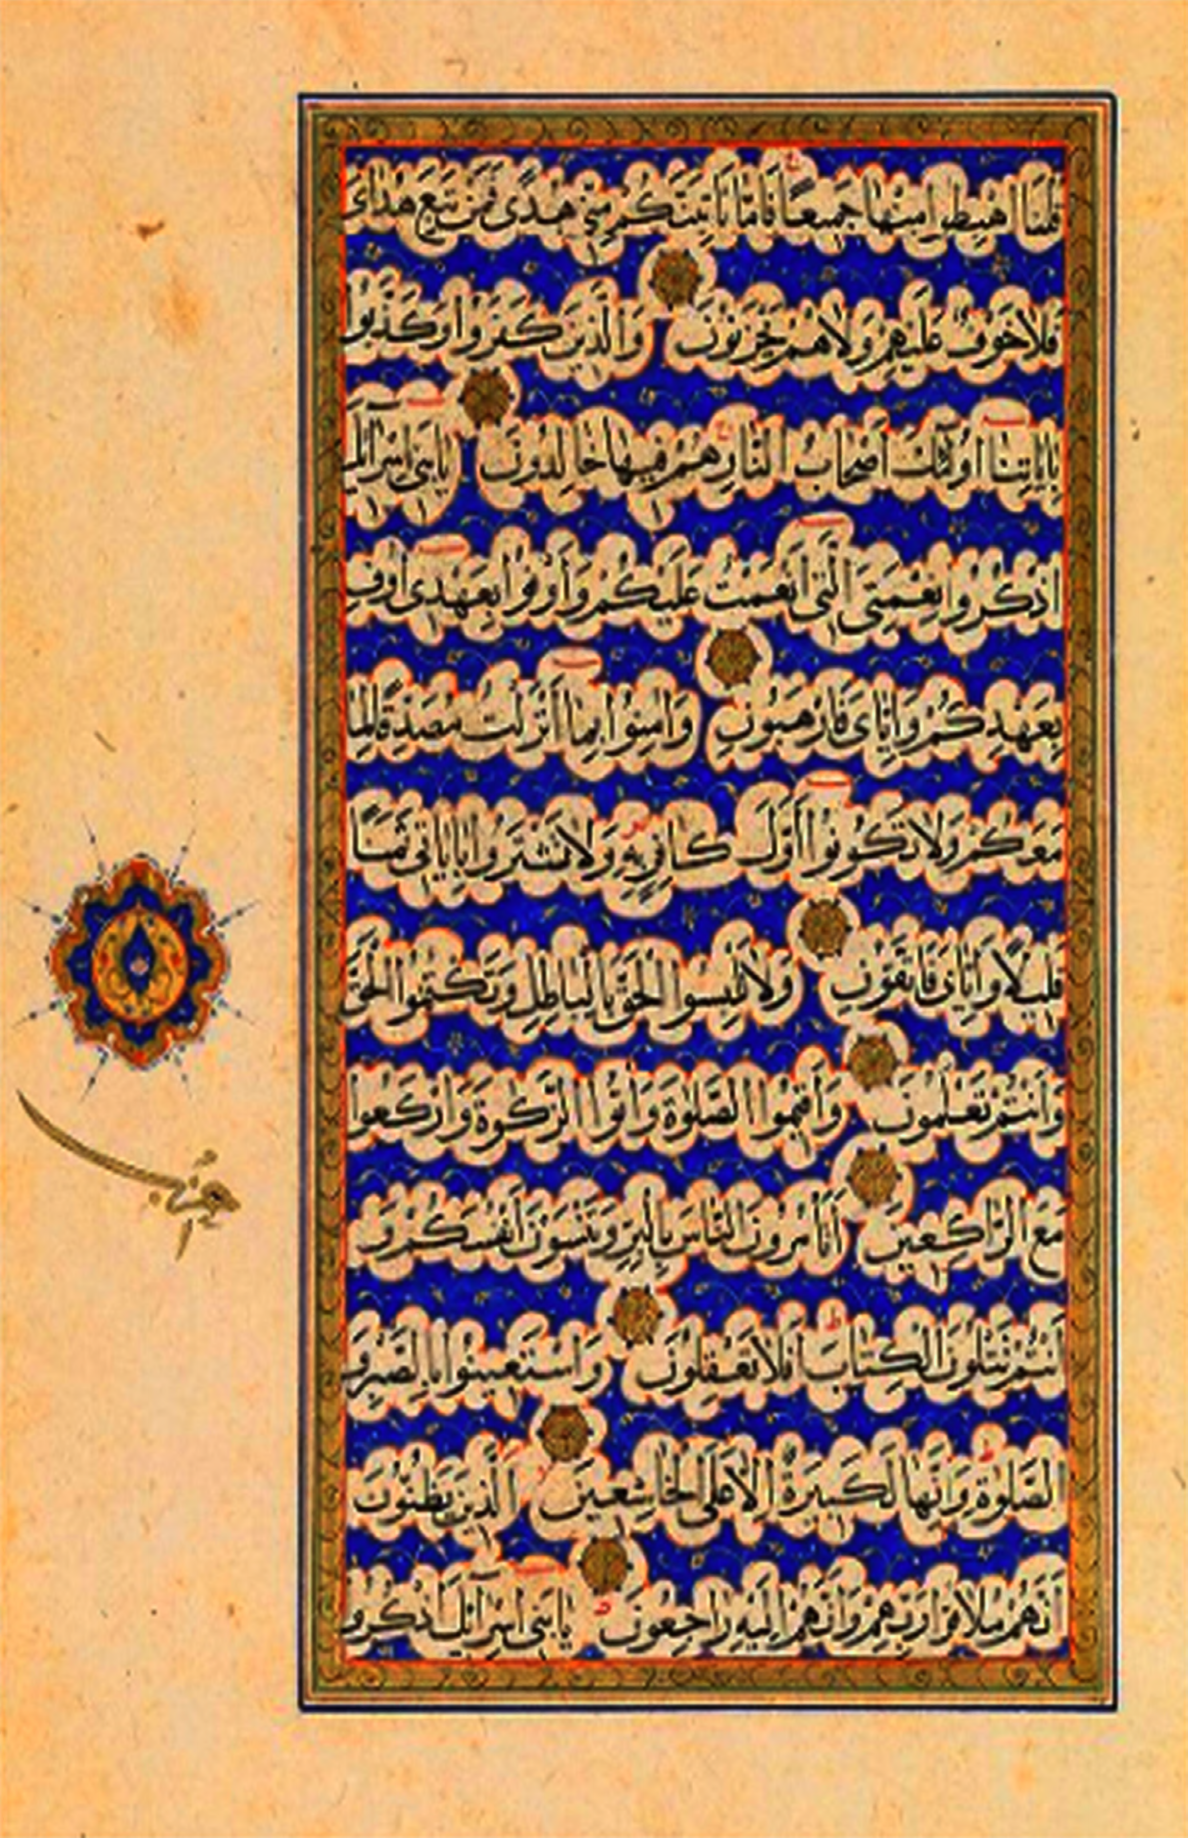 قُلْنَا اهْبِطُوا مِنْهَا جَمِيعًا فَاِمَّا يَاْتِيَنَّكُمْ مِنِّي هُدًى فَمَنْ تَبِعَ هُدَايَ
فَلَا خَوْفٌ عَلَيْهِمْ وَلَا هُمْ يَحْزَنُونَ وَالَّذِينَ كَفَرُوا وَكَذَّبُوا
بِاٰيَاتِنَا اُولٰئِكَ اَصْحَابُ النَّارِ هُمْ فِيهَا خَالِدُونَ يَابَنِي اِسْرَائِلَ
اذْكُرُوا نِعْمَتِيَ الَّتِي اَنْعَمْتُ عَلَيْكُمْ وَاَوْفُوا بِعَهْدِي اُوفِ
بِعَهْدِكُمْ وَاِيَّايَ فَارْهَبُونِ وَاٰمِنُوا بِمَا اَنْزَلْتُ مُصَدِّقًا لِمَا
مَعَكُمْ وَلَا تَكُونُوا اَوَّلَ كَافِرٍ بِهِ وَلَا تَشْتَرُوا بِاٰيَاتِي ثَمَنًا
قَلِيلًا وَاِيَّايَ فَاتَّقُونِ وَلَا تَلْبِسُوا الْحَقَّ بِالْبَاطِلِ وَتَكْتُمُوا الْحَقَّ
وَاَنْتُمْ تَعْلَمُونَ وَاَقِيمُوا الصَّلٰوةَ وَاٰتُوا الزَّكٰوةَ وَارْكَعُوا
مَعَ الرَّاكِعِينَ اَتَاْمُرُونَ النَّاسَ بِالْبِرِّ وَتَنْسَوْنَ اَنْفُسَكُمْ وَ
اَنْتُمْ تَتْلُونَ الْكِتَابَ اَفَلَا تَعْقِلُونَ وَاسْتَعِينُوا بِالصَّبْرِ وَ
الصَّلٰوةِ وَاِنَّهَا لَكَبِيرَةٌ اِلَّا عَلَى الْخَاشِعِينَ الَّذِينَ يَظُنُّونَ
اَنَّهُمْ مُلَاقُوا رَبِّهِمْ وَاَنَّهُمْ اِلَيْهِ رَاجِعُونَ يَابَنِي اِسْرَائِلَ اذْكُرُوا